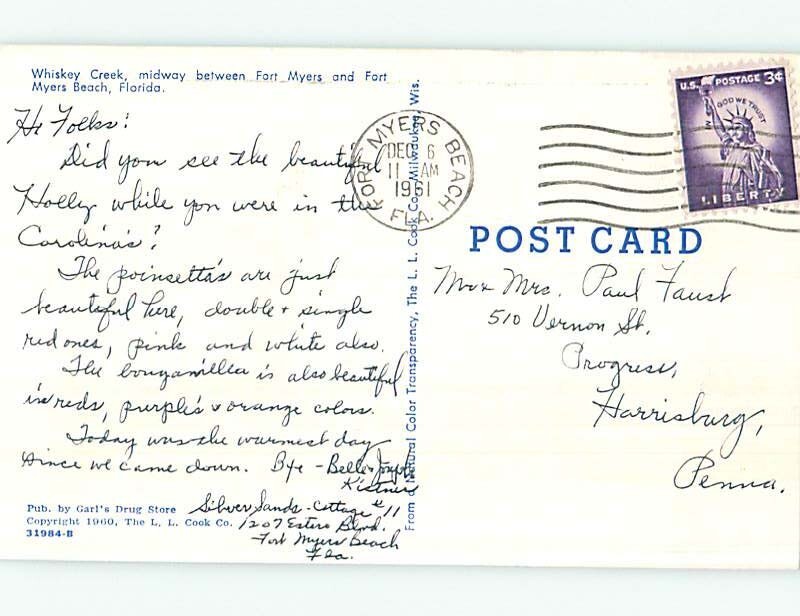 Whiskey Creek, midway between Fort Myers and Fort
Myers Beach, Florida.
Hi Folks:
Did you see the beautiful
Holly while you were in the
Carolina's?
The poinsetta's are just
beautiful here, double + single
red ones, pink and white also.
The bouganvillea is also beautiful
in reds, purple's & orange colors.
Today was the warmest day
since we came down. Bye - Belle + Joseph
Kistner
Silver Sands - Cottage #11
1207 Estero Blvd.
Fort Myers Beach
Fla.
Pub. by Garl's Drug Store
Copyright 1960, The L. L. Cook Co.
31984-B
From a Natural Color Transparency, The L. L. Cook Co., Milwaukee, Wis.
FORT MYERS BEACH
DEC 6
11 AM
1961
FLA.
U.S. POSTAGE 3¢
IN GOD WE TRUST
LIBERTY
POST CARD
Mr & Mrs. Paul Faust
510 Vernon St.
Progress,
Harrisburg,
Penna.